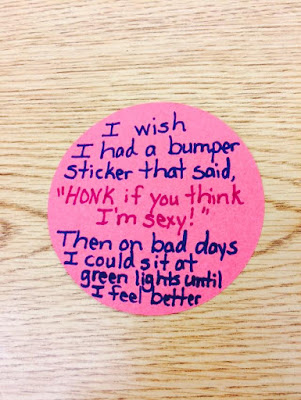 I wish
I had a bumper
sticker that said,
"HONK if you think
I'm sexy!"
Then on bad days
I could sit at
green lights until
I feel better